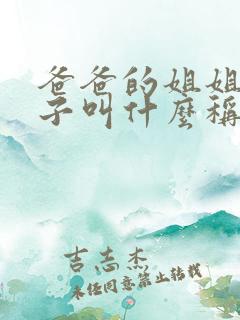 爸爸的姐姐
子叫什麼稱
吉志杰
未经同意禁止转载